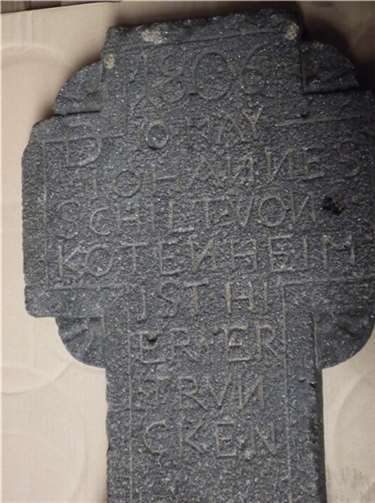 1806
D 10 MAY
IOHANNES
SCHILT·VON
KOTENHEIM
IST HI
ER·ER
TRVN
CKEN